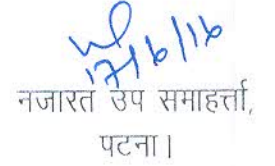 17/6/16
नजारत उप समाहर्त्ता,
पटना।